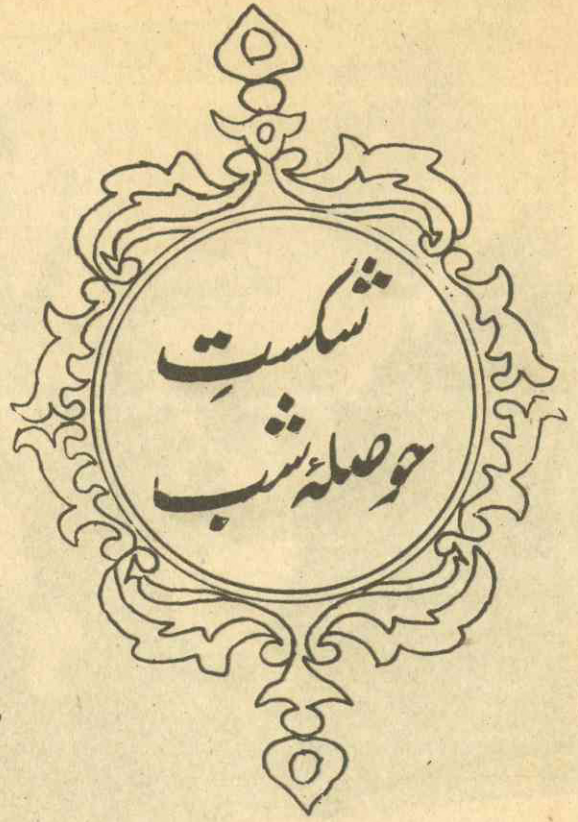 شکستِ
حوصلۂ شب